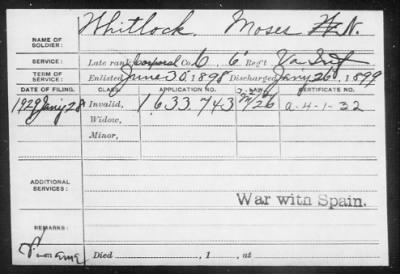 NAME OF SOLDIER: Whitlock, Moses N.
SERVICE: Late rank Corporal Co. C, 6 Reg't Va Inf
TERM OF SERVICE: Enlisted June 30, 1898 Discharged Jany 26, 1899
DATE OF FILING. CLASS. APPLICATION NO. LAW. CERTIFICATE NO.
1929 Jany 28 Invalid, 1633743 /26 a-4-1-32
Widow,
Minor,
ADDITIONAL SERVICES:
War with Spain.
REMARKS:
Died , 1 , at